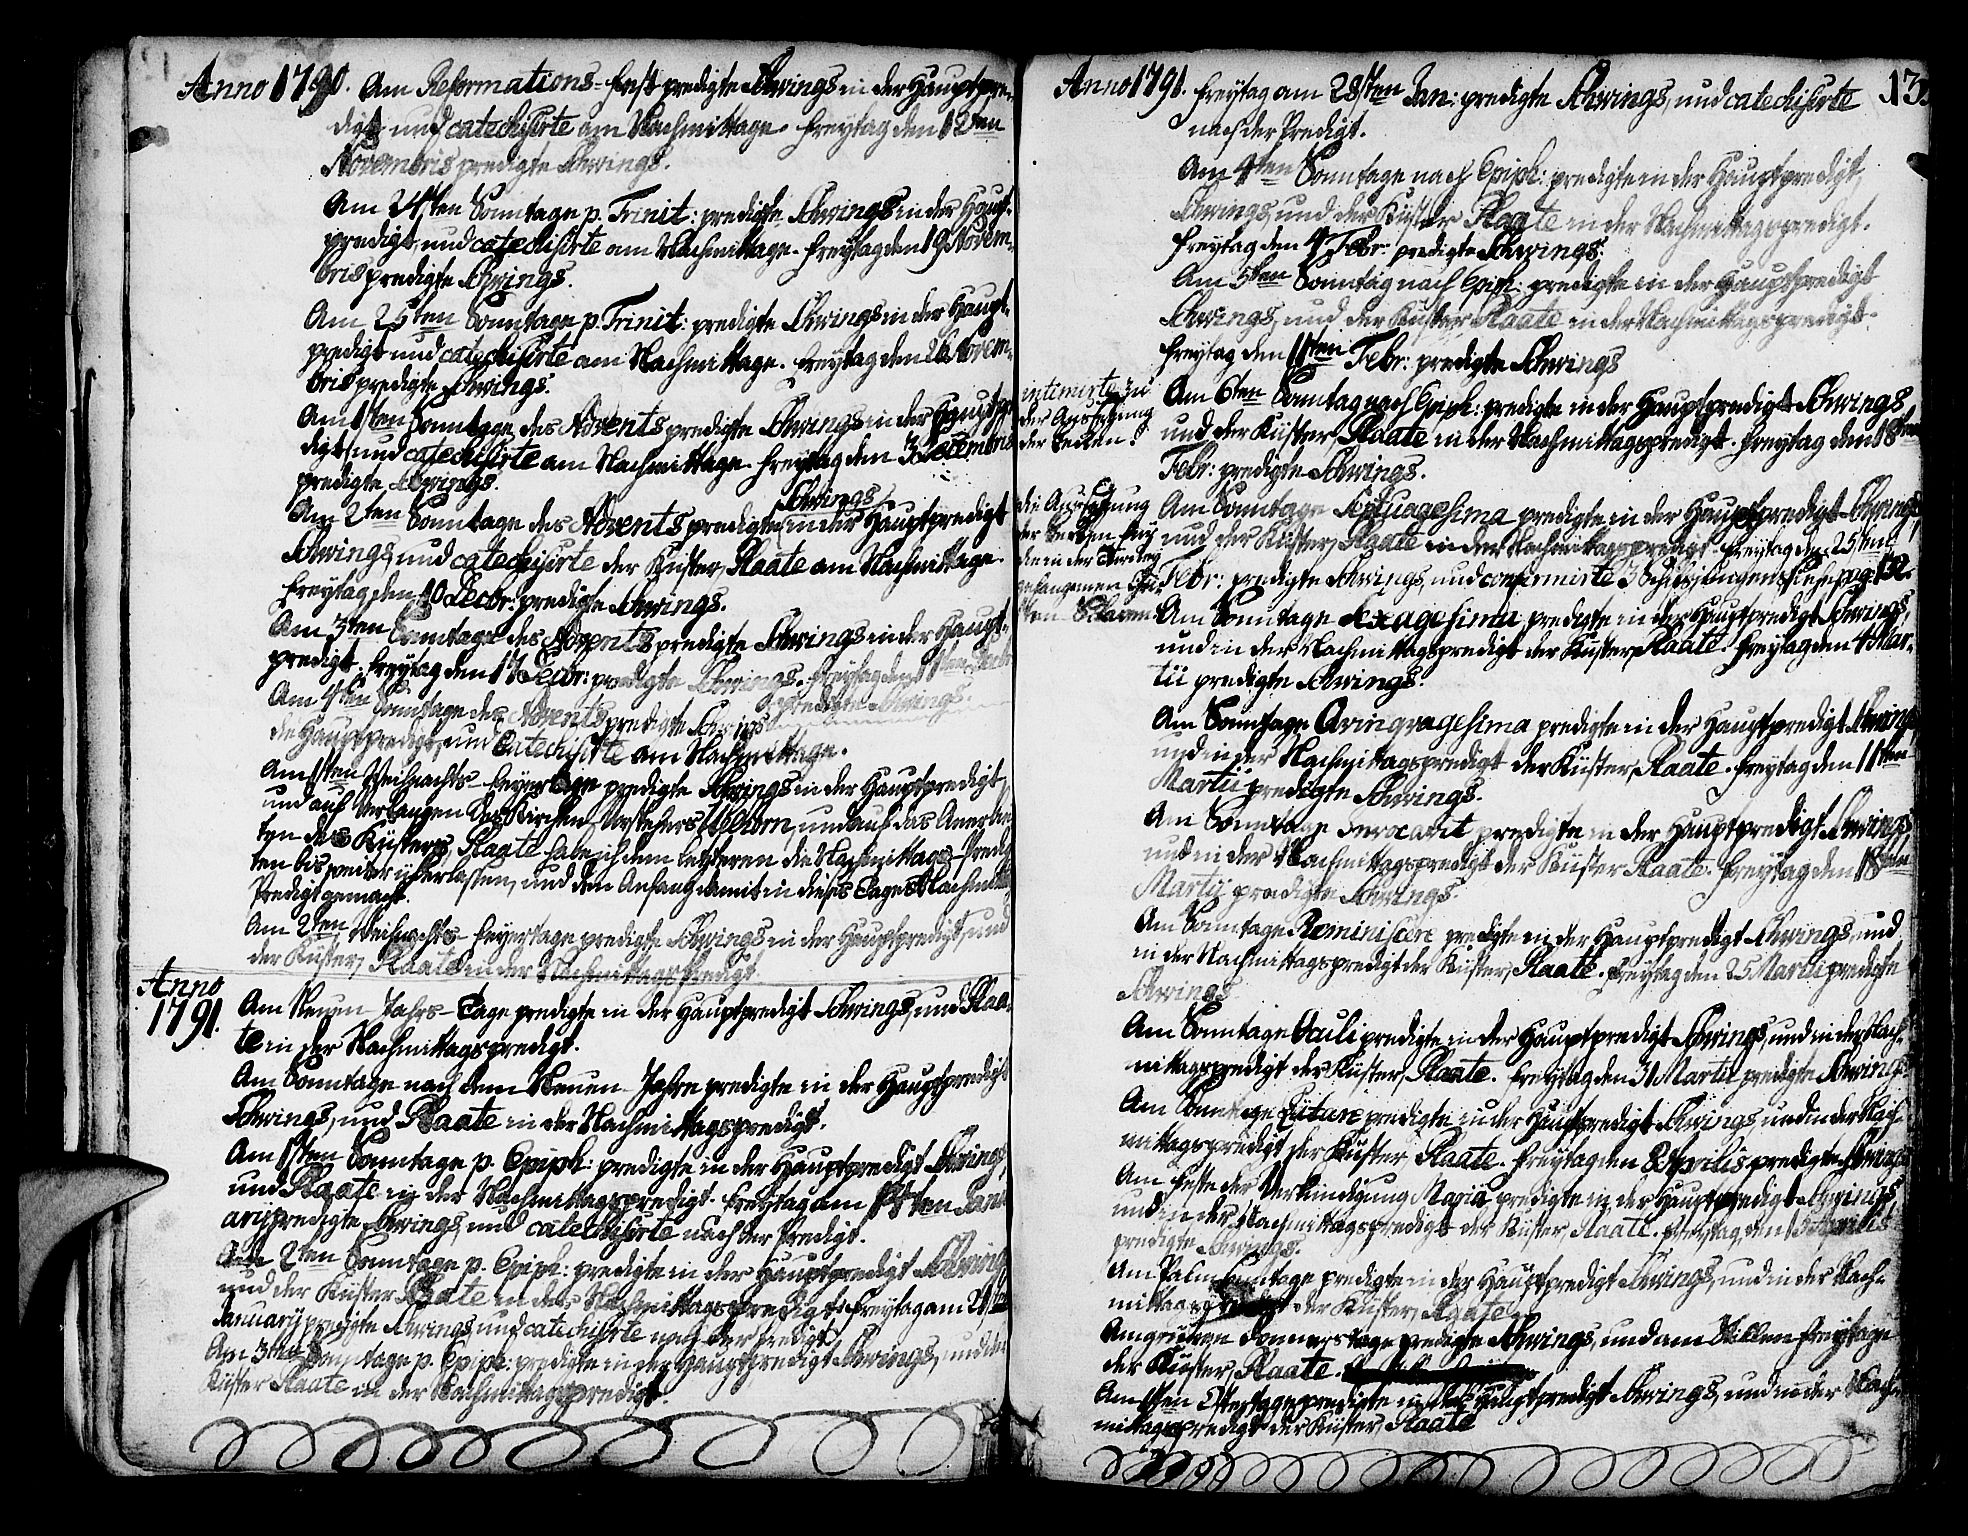 Anno 1790. Am Reformations-Fest predigte Schwings in der Hauptpre-
digt, und catechisirte am Nachmittage. Freytag den 12ten
Novembris predigte Schwings.
Am 24sten Sonntage p. Trinit: predigte Schwings in der Haupt-
predigt, und catechisirte am Nachmittage. Freytag den 19 Novem-
bris predigte Schwings.
Am 25ten Sonntage p. Trinit: predigte Schwings in der Haupt-
predigt und catechisirte am Nachmittage. Freytag den 26 Novem-
bris predigte Schwings.
Am 1sten Sonntage des Advents predigte Schwings in der Hauptpre-
digt, und catechisirte am Nachmittage. Freytag den 3 Decembris
predigte Schwings.
Schwings
Am 2ten Sonntage des Advents predigte in der Hauptpredigt
Schwings, und catechisirte der Küster, Staate am Nachmittage.
Freytag den 10 Decbr: predigte Schwings.
Am 3ten Sonntage des Advents predigte Schwings in der Haupt-
predigt. Freytag den 17 Decbr: predigte Schwings. Freytag den
predigte Schwings.
Am 4ten Sonntage des Advents predigte Schwings
die Hauptpredigt, und Catechisirte am Nachmittage.
Am 1sten Weihnachts-Feyertage predigte Schwings in der Hauptpredigt,
und auf Verlangen des Kirchen-Vorstehers und auf das Anerbie-
ten des Küsters, Staate habe ich dem letzteren die Nachmittags-Predig-
ten bis weiter überlassen, und den Anfang damit in dieses Tages Nachmittags
Predigt gemacht.
Am 2ten Weihnachts-Feyertage predigte Schwings in der Hauptpredigt, und
der Küster, Staate in der Nachmittagspredigt.
Anno
1791. Am Neuen-Jahrs-Tage predigte in der Hauptpredigt Schwings, und Staa-
te in der Nachmittagspredigt.
Am Sonntage nach dem Neuen-Jahre predigte in der Hauptpredigt
Schwings, und Staate in der Nachmittagspredigt.
Am 1sten Sonntage p. Epiph: predigte in der Hauptpredigt Schwings,
und Staate in der Nachmittagspredigt. Freytag am 14ten Janu-
ary predigte Schwings, und catechisirte nach der Predigt.
Am 2ten Sonntage p. Epiph: predigte in der Hauptpredigt Schwings
und der Küster Staate in der Nachmittagspredigt. Freytag am 21sten
January predigte Schwings, und catechisirte nach der Predigt.
Am 3ten Sonntage p. Epiph: predigte in der Hauptpredigt Schwings, und der
Küster Staate in der Nachmittagspredigt.
Anno 1791. Freytag am 28sten Jan: predigte Schwings, und catechisirte
nach der Predigt.
Am 4ten Sonntage nach Epiph: predigte in der Hauptpredigt,
Schwings, und der Küster Staate in der Nachmittagspredigt.
Freytag den 4 Febr: predigte Schwings.
Am 5ten Sonntag nach Epiph: predigte in der Hauptpredigt
Schwings, und der Küster Staate in der Nachmittagspredigt.
Freytag den 11ten Febr: predigte Schwings
intimirte zu
der Aussetzung
der Becken.
Am 6ten Sonntag nach Epiph: predigte in der Hauptpredigt Schwings
und der Küster, Staate in der Nachmittagspredigt. Freytag den 18ten
Febr: predigte Schwings.
die Aussetzung
der Becken für
die in der
gefangenen Chri-
sten Sclaven
Am Sonntage Septuagesima predigte in der Hauptpredigt Schwings,
und der Küster, Staate in der Nachmittagspredigt. Freytag den 25sten
Febr: predigte Schwings, und confirmirte 3 siehe pag: 132.
Am Sonntage Sexagesima predigte in der Hauptpredigt Schwings,
und in der Nachmittagspredigt der Küster, Staate. Freytag den 4 Mar-
tii predigte Schwings.
Am Sonntage Qvinqvagesima predigte in der Hauptpredigt Schwings
und in der Nachmittagspredigt der Küster, Staate. Freytag den 11ten
Martii predigte Schwings.
Am Sonntage Invocavit predigte in der Hauptpredigt Schwings,
und in der Nachmittagspredigt der Küster Staate. Freytag den 18ten
Martij predigte Schwings.
Am Sonntage Reminiscere predigte in der Hauptpredigt Schwings, und
in der Nachmittagspredigt der Küster, Staate. Freytag den 25 Martii predigte
Schwings.
Am Sonntage Oculi predigte in der Hauptpredigt Schwings, und in der Nach-
mittagspredigt der Küster, Staate. Freytag den 31 Martii predigte Schwings.
Am Sonntage Lätare predigte in der Hauptpredigt Schwings, und in der Nach-
mittagspredigt der Küster, Staate. Freytag den 8 Aprilis predigte Schwings
Am Feste der Verkündigung Mariä predigte in der Hauptpredigt Schwings,
und in der Nachmittagspredigt der Küster, Staate. Freytag, den 15 Aprilis
predigte Schwings.
Am Palm Sonntage predigte in der Hauptpredigt Schwings, und in der Nach-
mittagspredigt der Küster, Staate.
Am grünen Donnerstage predigte Schwings, und am Stillen Freytage
der Küster, Staate.
Am 1sten Ostertage predigte in der Hauptpredigt Schwings, und in der Nach-
mittagspredigt der Küster, Staate